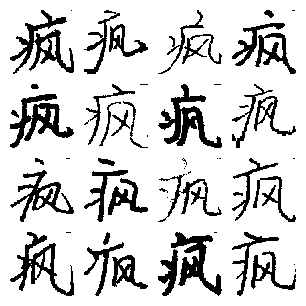 疯疯疯疯
疯疯疯疯
疯疯疯疯
疯疯疯疯